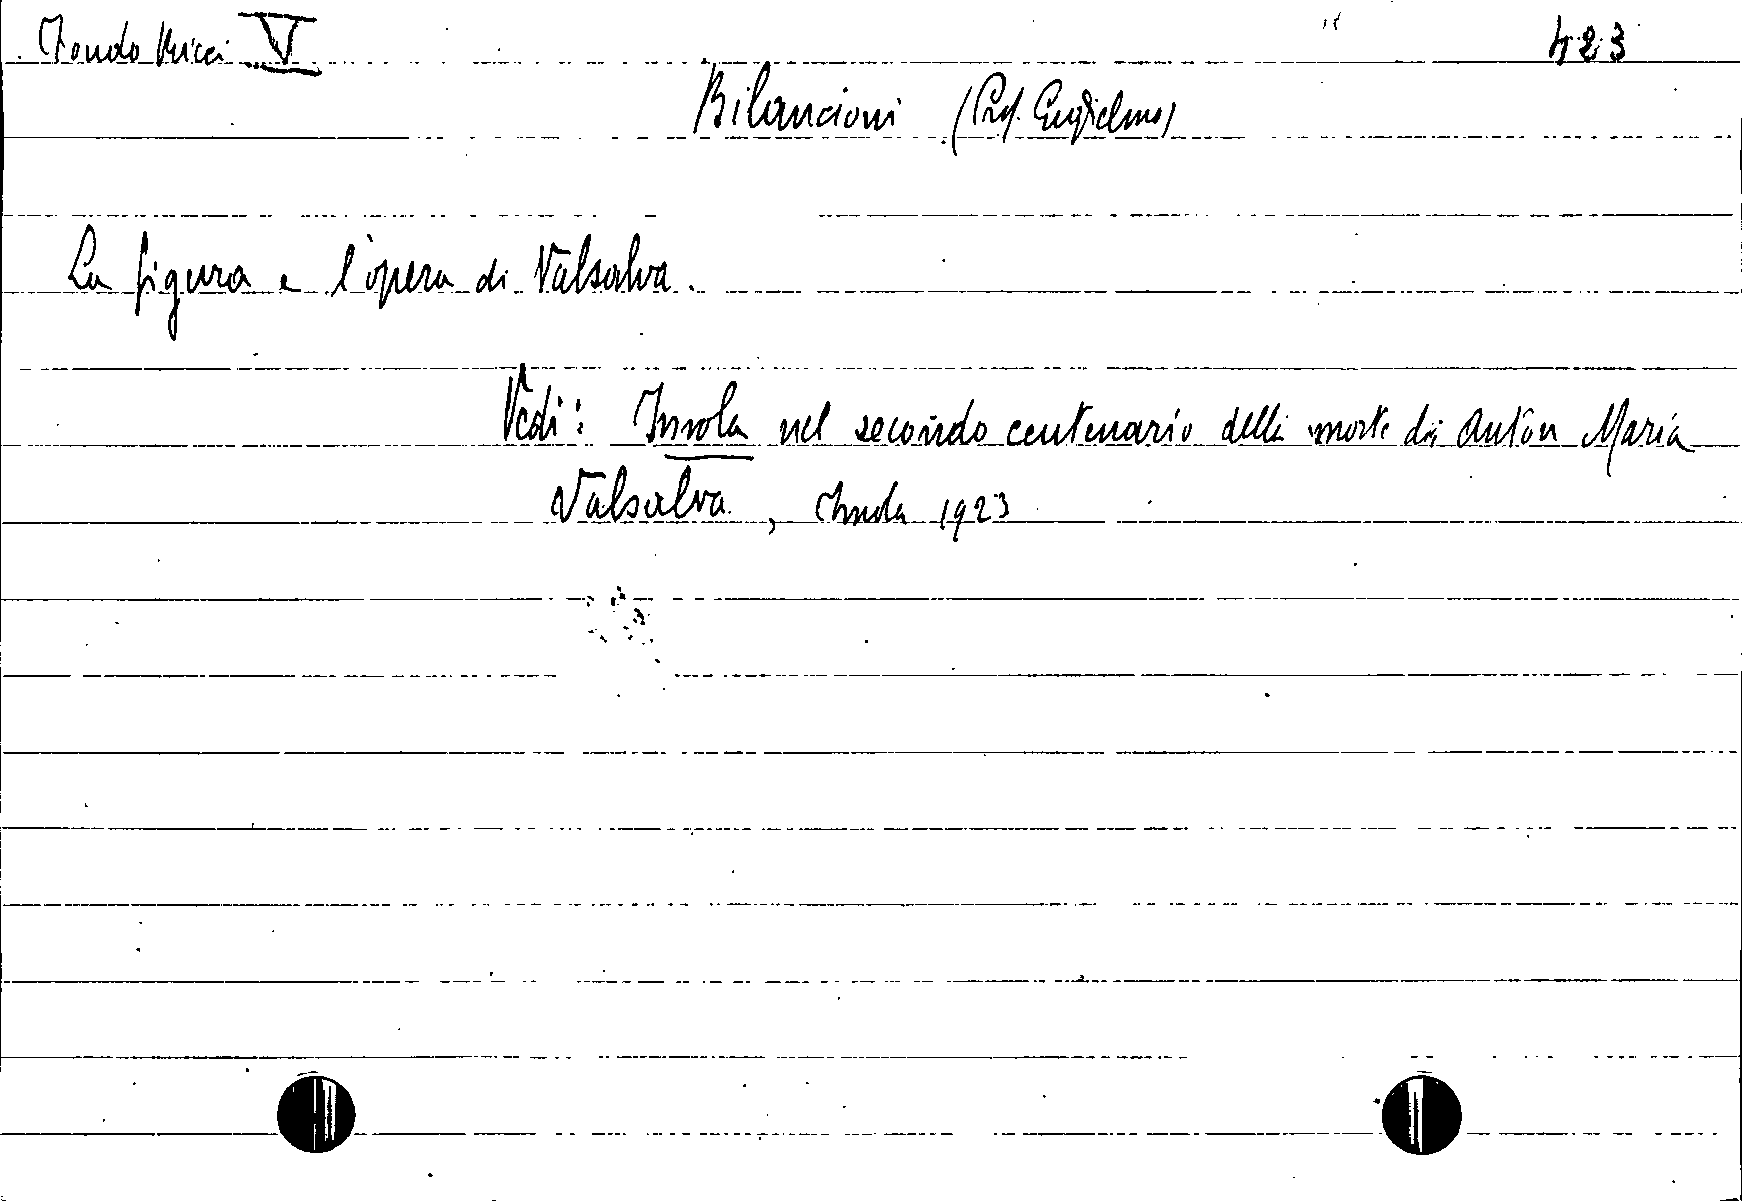 Fondo Ricci V 423
Bilancioni (Prof. Guglielmo)
La figura e l'opera di Valsalva.
Vedi: Imola nel secondo centenario della morte di Anton Maria
Valsalva, Imola 1923